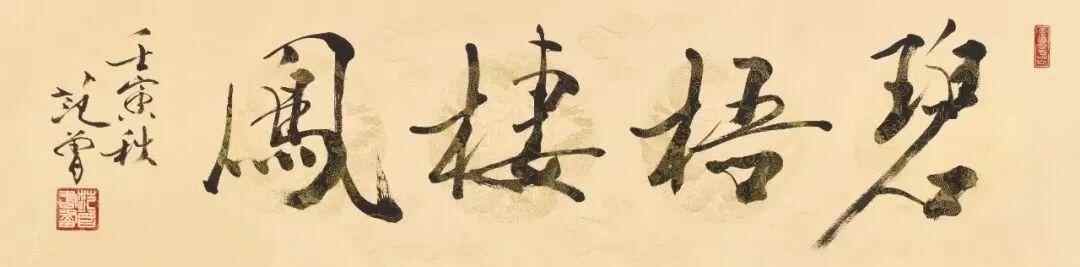 碧梧棲鳳
壬寅秋
范曾